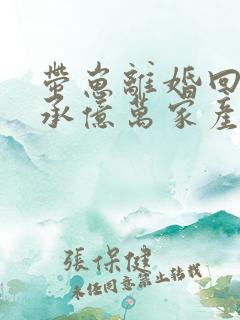 帶崽離婚回
承億萬家產
張保健
未經同意禁止轉載